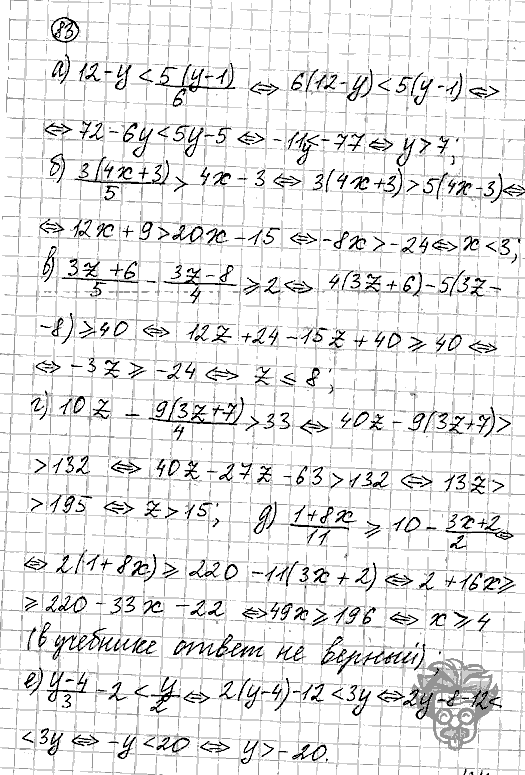 83
а) 12-y < 5(y-1)/6 ⇔ 6(12-y) < 5(y-1) ⇔
⇔ 72-6y < 5y-5 ⇔ -11y < -77 ⇔ y > 7;
б) 3(4x+3)/5 > 4x-3 ⇔ 3(4x+3) > 5(4x-3) ⇔
⇔ 12x+9 > 20x-15 ⇔ -8x > -24 ⇔ x < 3;
в) 3z+6/5 - 3z-8/4 ⩾ 2 ⇔ 4(3z+6)-5(3z-
-8) ⩾ 40 ⇔ 12z+24-15z+40 ⩾ 40 ⇔
⇔ -3z ⩾ -24 ⇔ z ⩽ 8;
г) 10z - 9(3z+7)/4 > 33 ⇔ 40z-9(3z+7) >
> 132 ⇔ 40z-27z-63 > 132 ⇔ 13z >
> 195 ⇔ z > 15; д) 1+8x/11 ⩾ 10 - 3x+2/2 ⇔
⇔ 2(1+8x) ⩾ 220-11(3x+2) ⇔ 2+16x ⩾
⩾ 220-33x-22 ⇔ 49x ⩾ 196 ⇔ x ⩾ 4
(в учебнике ответ не верный);
е) y-4/3 - 2 < y/2 ⇔ 2(y-4)-12 < 3y ⇔ 2y-8-12 <
< 3y ⇔ -y < 20 ⇔ y > -20.